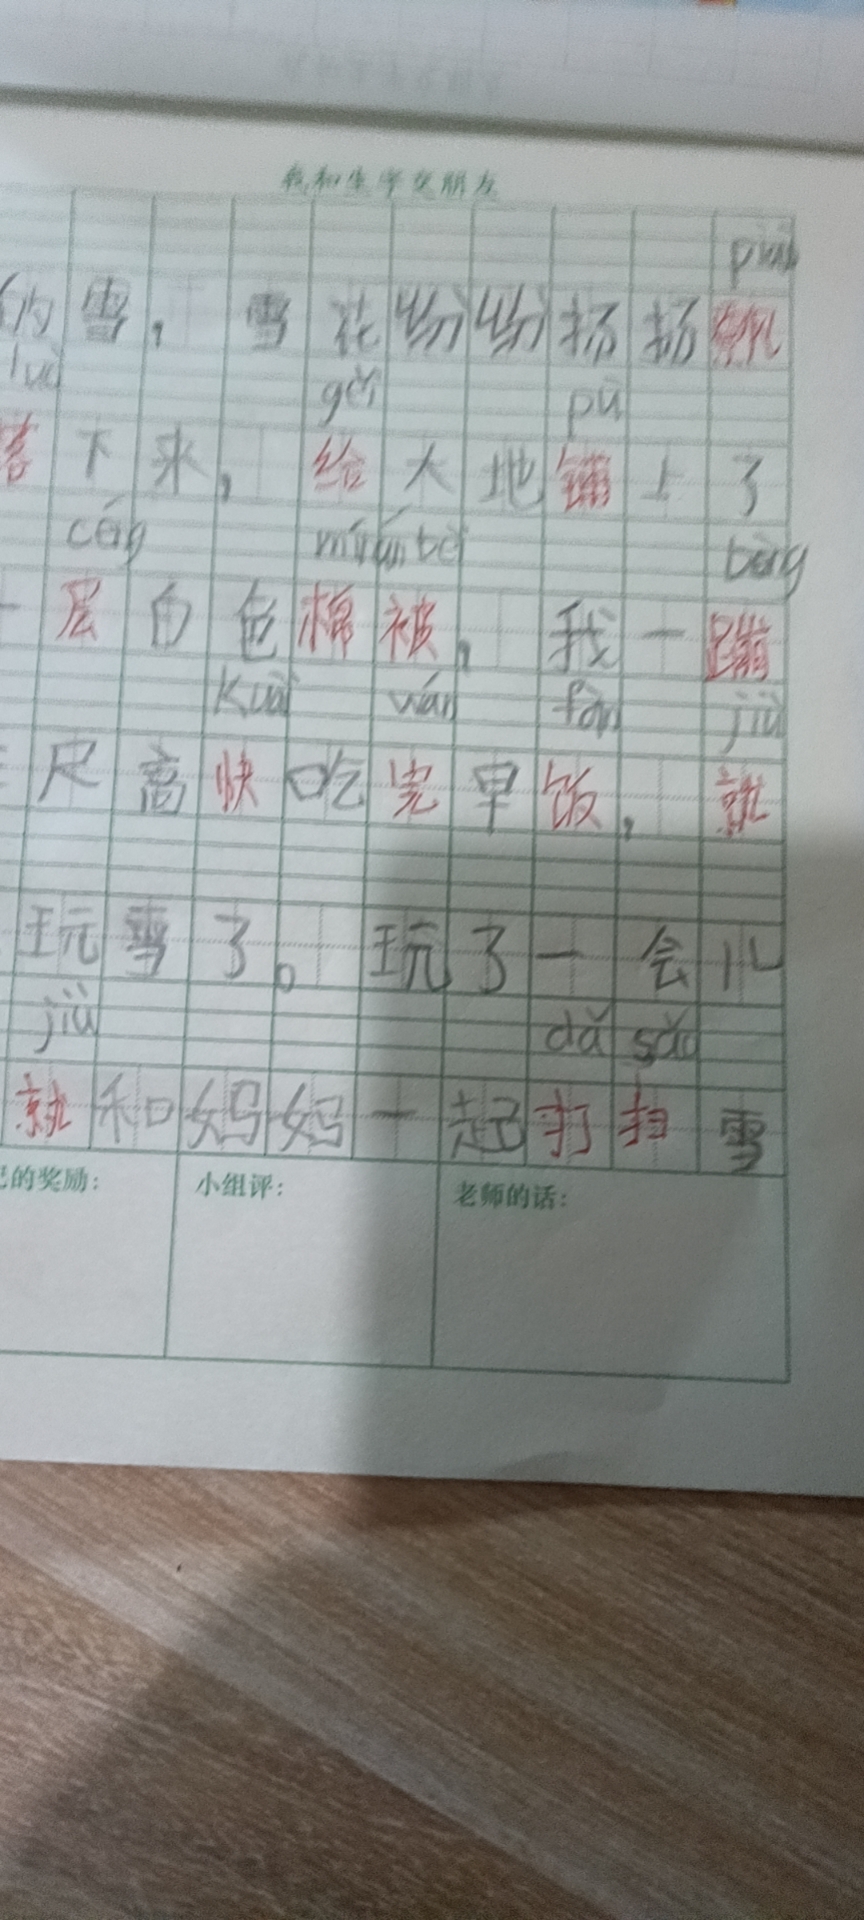 我和生字交朋友
的雪，雪花纷纷扬扬飘
luò gěi pū
落下来，给大地铺上了
céng mián bèi bèng
一层白色棉被，我一蹦
kuài wán fàn jiù
三尺高快吃完早饭，就
玩雪了。玩了一会儿
jiù dǎ sǎo
就和妈妈一起打扫雪
己的奖励： 小组评： 老师的话：